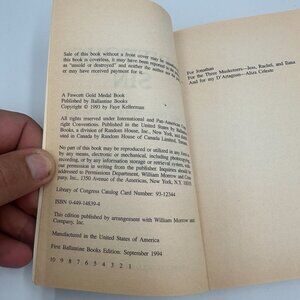 Sale of this book without a front cover may be unauthorized. If
this book is coverless, it may have been reported
as "unsold or destroyed" and neither the author nor the
may have received payment for it.
A Fawcett Gold Medal Book
Published by Ballantine Books
Copyright © 1993 by Faye Kellerman
All rights reserved under International and Pan-American Copy-
right Conventions. Published in the United States by Ballantine
Books, a division of Random House, Inc., New York, and
in Canada by Random House of Canada Limited, Toronto.
No part of this book may be reproduced or utilized in any form or
by any means, electronic or mechanical, including photocopying,
recording, or by any information storage or retrieval system, without
permission in writing from the publisher. Inquiries should be
addressed to Permissions Department, William Morrow and Company,
Inc., 1350 Avenue of the Americas, New York, N.Y. 10019.
Library of Congress Catalog Card Number: 93-12344
ISBN 0-449-14839-4
This edition published by arrangement with William Morrow and
Company, Inc.
Manufactured in the United States of America
First Ballantine Books Edition: September 1994
10 9 8 7 6 5 4 3 2 1
For Jonathan
For the Three Musketeers—Jess, Rachel, and Ilana
And for my D'Artagnan—Aliza Celeste